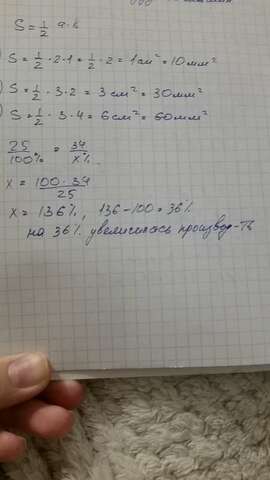 S = 1/2 a·b
) S = 1/2 · 2 · 1 = 1/2 · 2 = 1 см² = 10 мм²
) S = 1/2 · 3 · 2 = 3 см² = 30 мм²
) S = 1/2 · 3 · 4 = 6 см² = 60 мм²
25/100% = 34/x%.
x = 100 · 34/25
x = 136%, 136 - 100 = 36%
на 36% увеличилась производ-ть